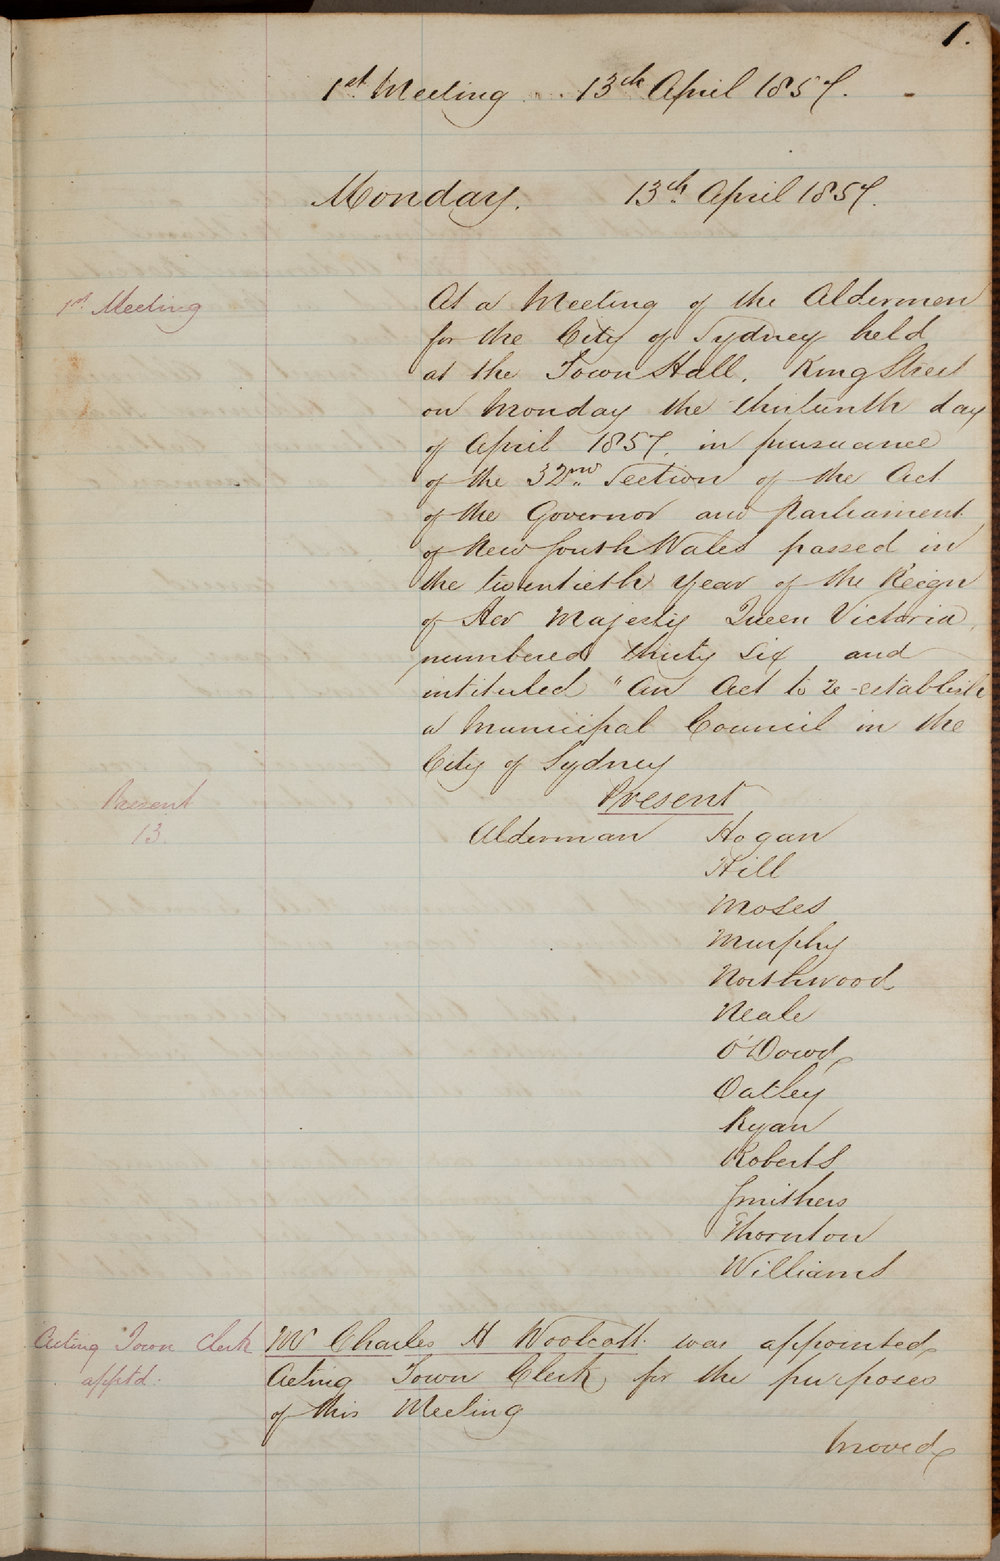 1.
1st Meeting 13th April 1857.
Monday. 13th April 1857.
1st Meeting
At a Meeting of the Aldermen
for the City of Sydney held
at the Town Hall, King Street
on Monday the thirteenth day
of April 1857, in pursuance
of the 32nd Section of the Act
of the Governor and Parliament
of New South Wales passed in
the twentieth year of the Reign
of Her Majesty Queen Victoria,
numbered thirty six and
intituled "An Act to re-establish
a Municipal Council in the
City of Sydney
Present
13
Present
Alderman Hogan
Hill
Moses
Murphy
Northwood
Neale
O'Dowd
Oatley
Ryan
Roberts
Smithers
Thornton
Williams
Acting Town Clerk
apptd.
Mr Charles H Woolcott was appointed
Acting Town Clerk for the purposes
of this Meeting
Moved